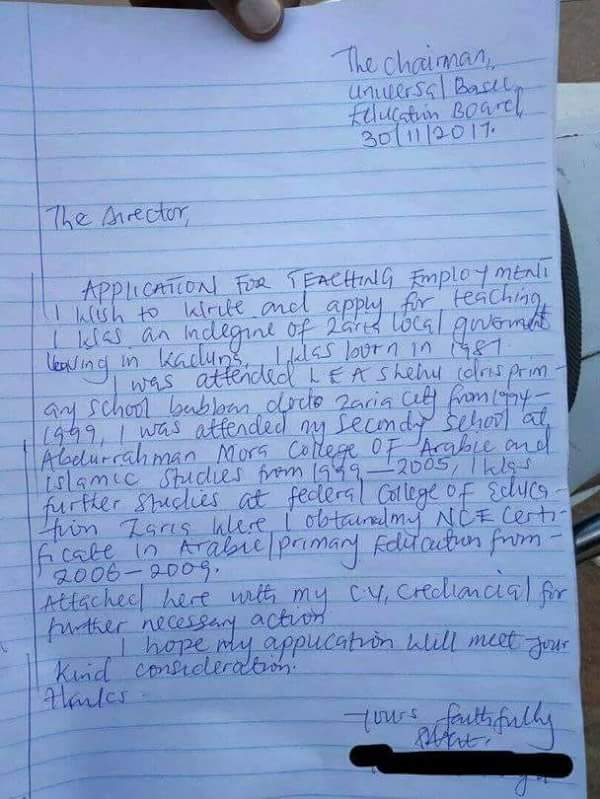 The Chairman,
Universal Basic
Education Board,
30/11/2017.
The Director,
APPLICATION FOR TEACHING Employment
I Wish to Write and apply for teaching,
I Was an indegine of Zaria local goverment
leaving in Kaduna. I Was born in 1987.
I was attended L E A Shehu idris prim-
ary school babban dodo Zaria City from 1994-
1999, I was attended my Secondy School at
Abdurrahman Mora College OF Arabic and
islamic studies from 1999-2005, I Was
further studies at federal College OF Educa-
tion Zaria Where I obtained my NCE Certi-
ficate in Arabic/primary Education from-
2006-2009.
Attached here with my C.V, Crediancial for
further necessary action
I hope my application Will meet your
Kind consideration.
thanks.
yours faithfully